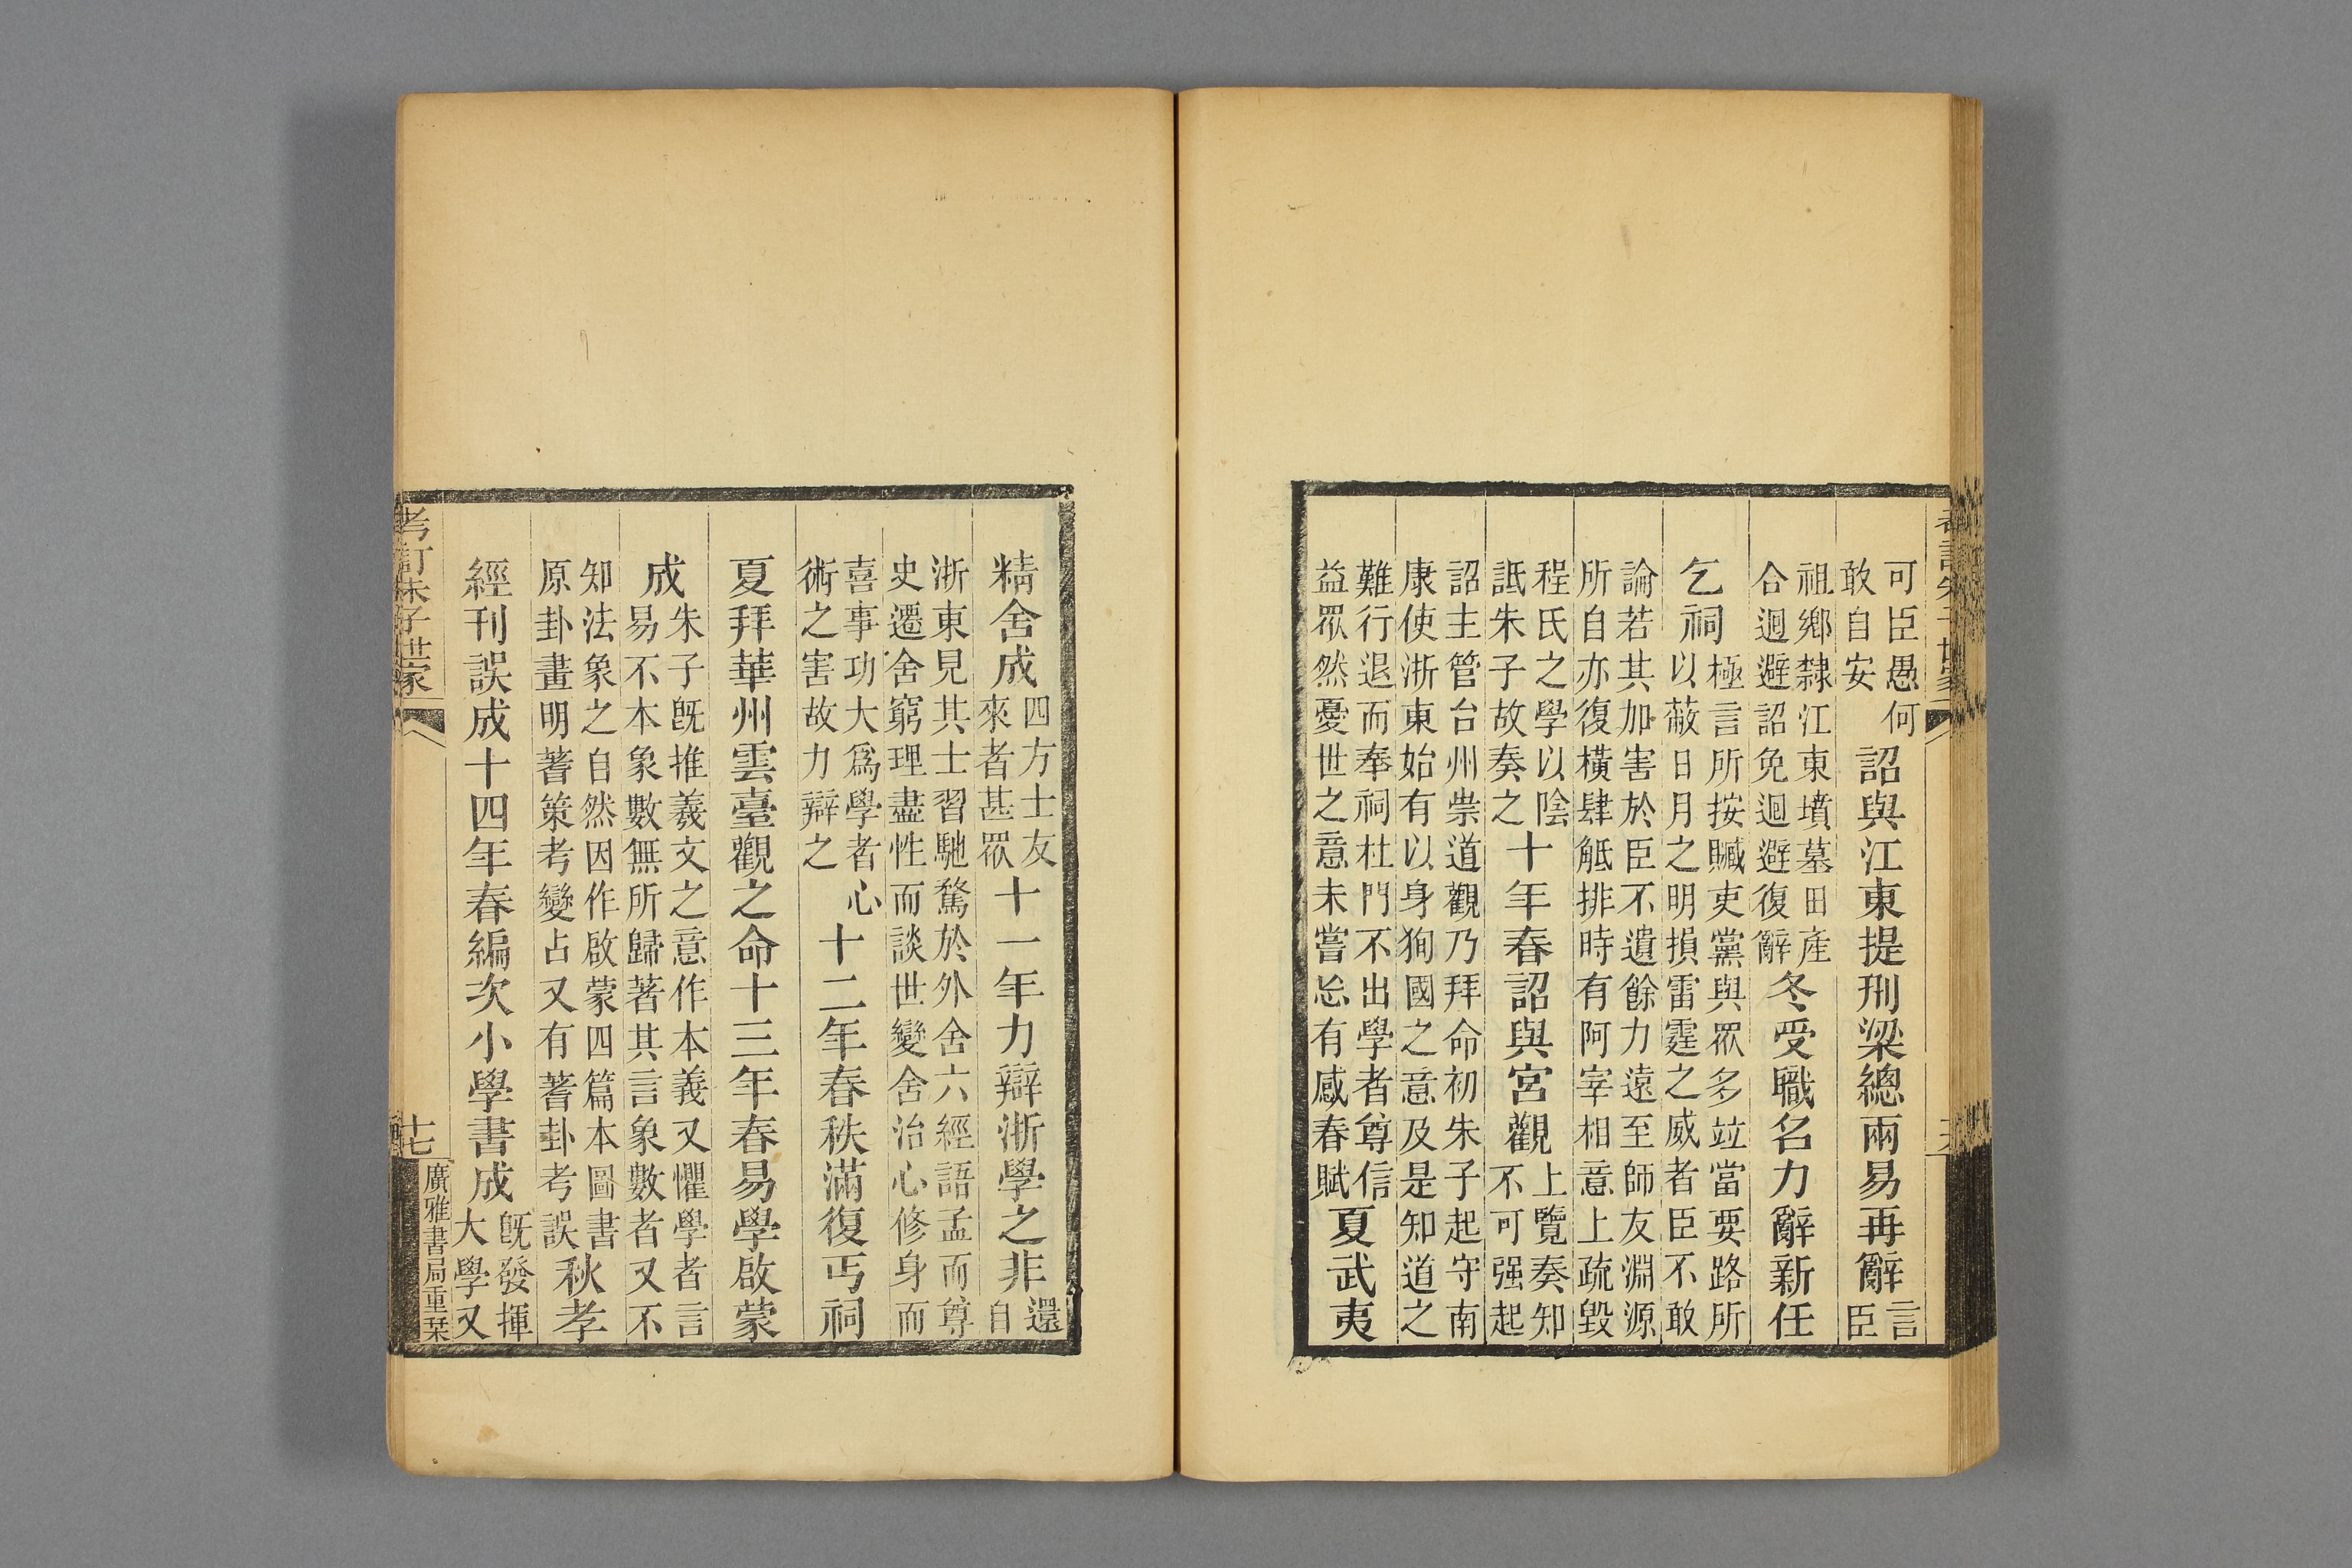 可臣愚何敢自安詔與江東提刑梁總兩易再辭言臣
祖鄉隸江東墳墓田產合迴避詔免迴避復辭冬受職名力辭新任
乞祠極言所按贓吏黨與眾多竝當要路所以蔽日月之明損雷霆之威者臣不敢
論若其加害於臣不遺餘力遠至師友淵源所自亦復橫肆觝排時有阿宰相意上疏毀
程氏之學以陰詆朱子故奏之十年春詔與宮觀上覽奏知不可强起
詔主管台州崇道觀乃拜命初朱子起守南康使浙東始有以身狥國之意及是知道之
難行退而奉祠杜門不出學者尊信益眾然憂世之意未嘗忘有感春賦夏武夷
精舍成四方士友來者甚眾十一年力辯浙學之非還自
浙東見其士習馳騖於外舍六經語孟而尊史遷舍窮理盡性而談世變舍治心修身而
喜事功大爲學者心術之害故力辯之十二年春秩滿復丐祠
夏拜華州雲臺觀之命十三年春易學啟蒙
成朱子旣推羲文之意作本義又懼學者言易不本象數無所歸著其言象數者又不
知法象之自然因作啟蒙四篇本圖書原卦畫明蓍策考變占又有蓍卦考誤秋孝
經刊誤成十四年春編次小學書成旣發揮大學又
考訂朱子世家
十七
廣雅書局重栞